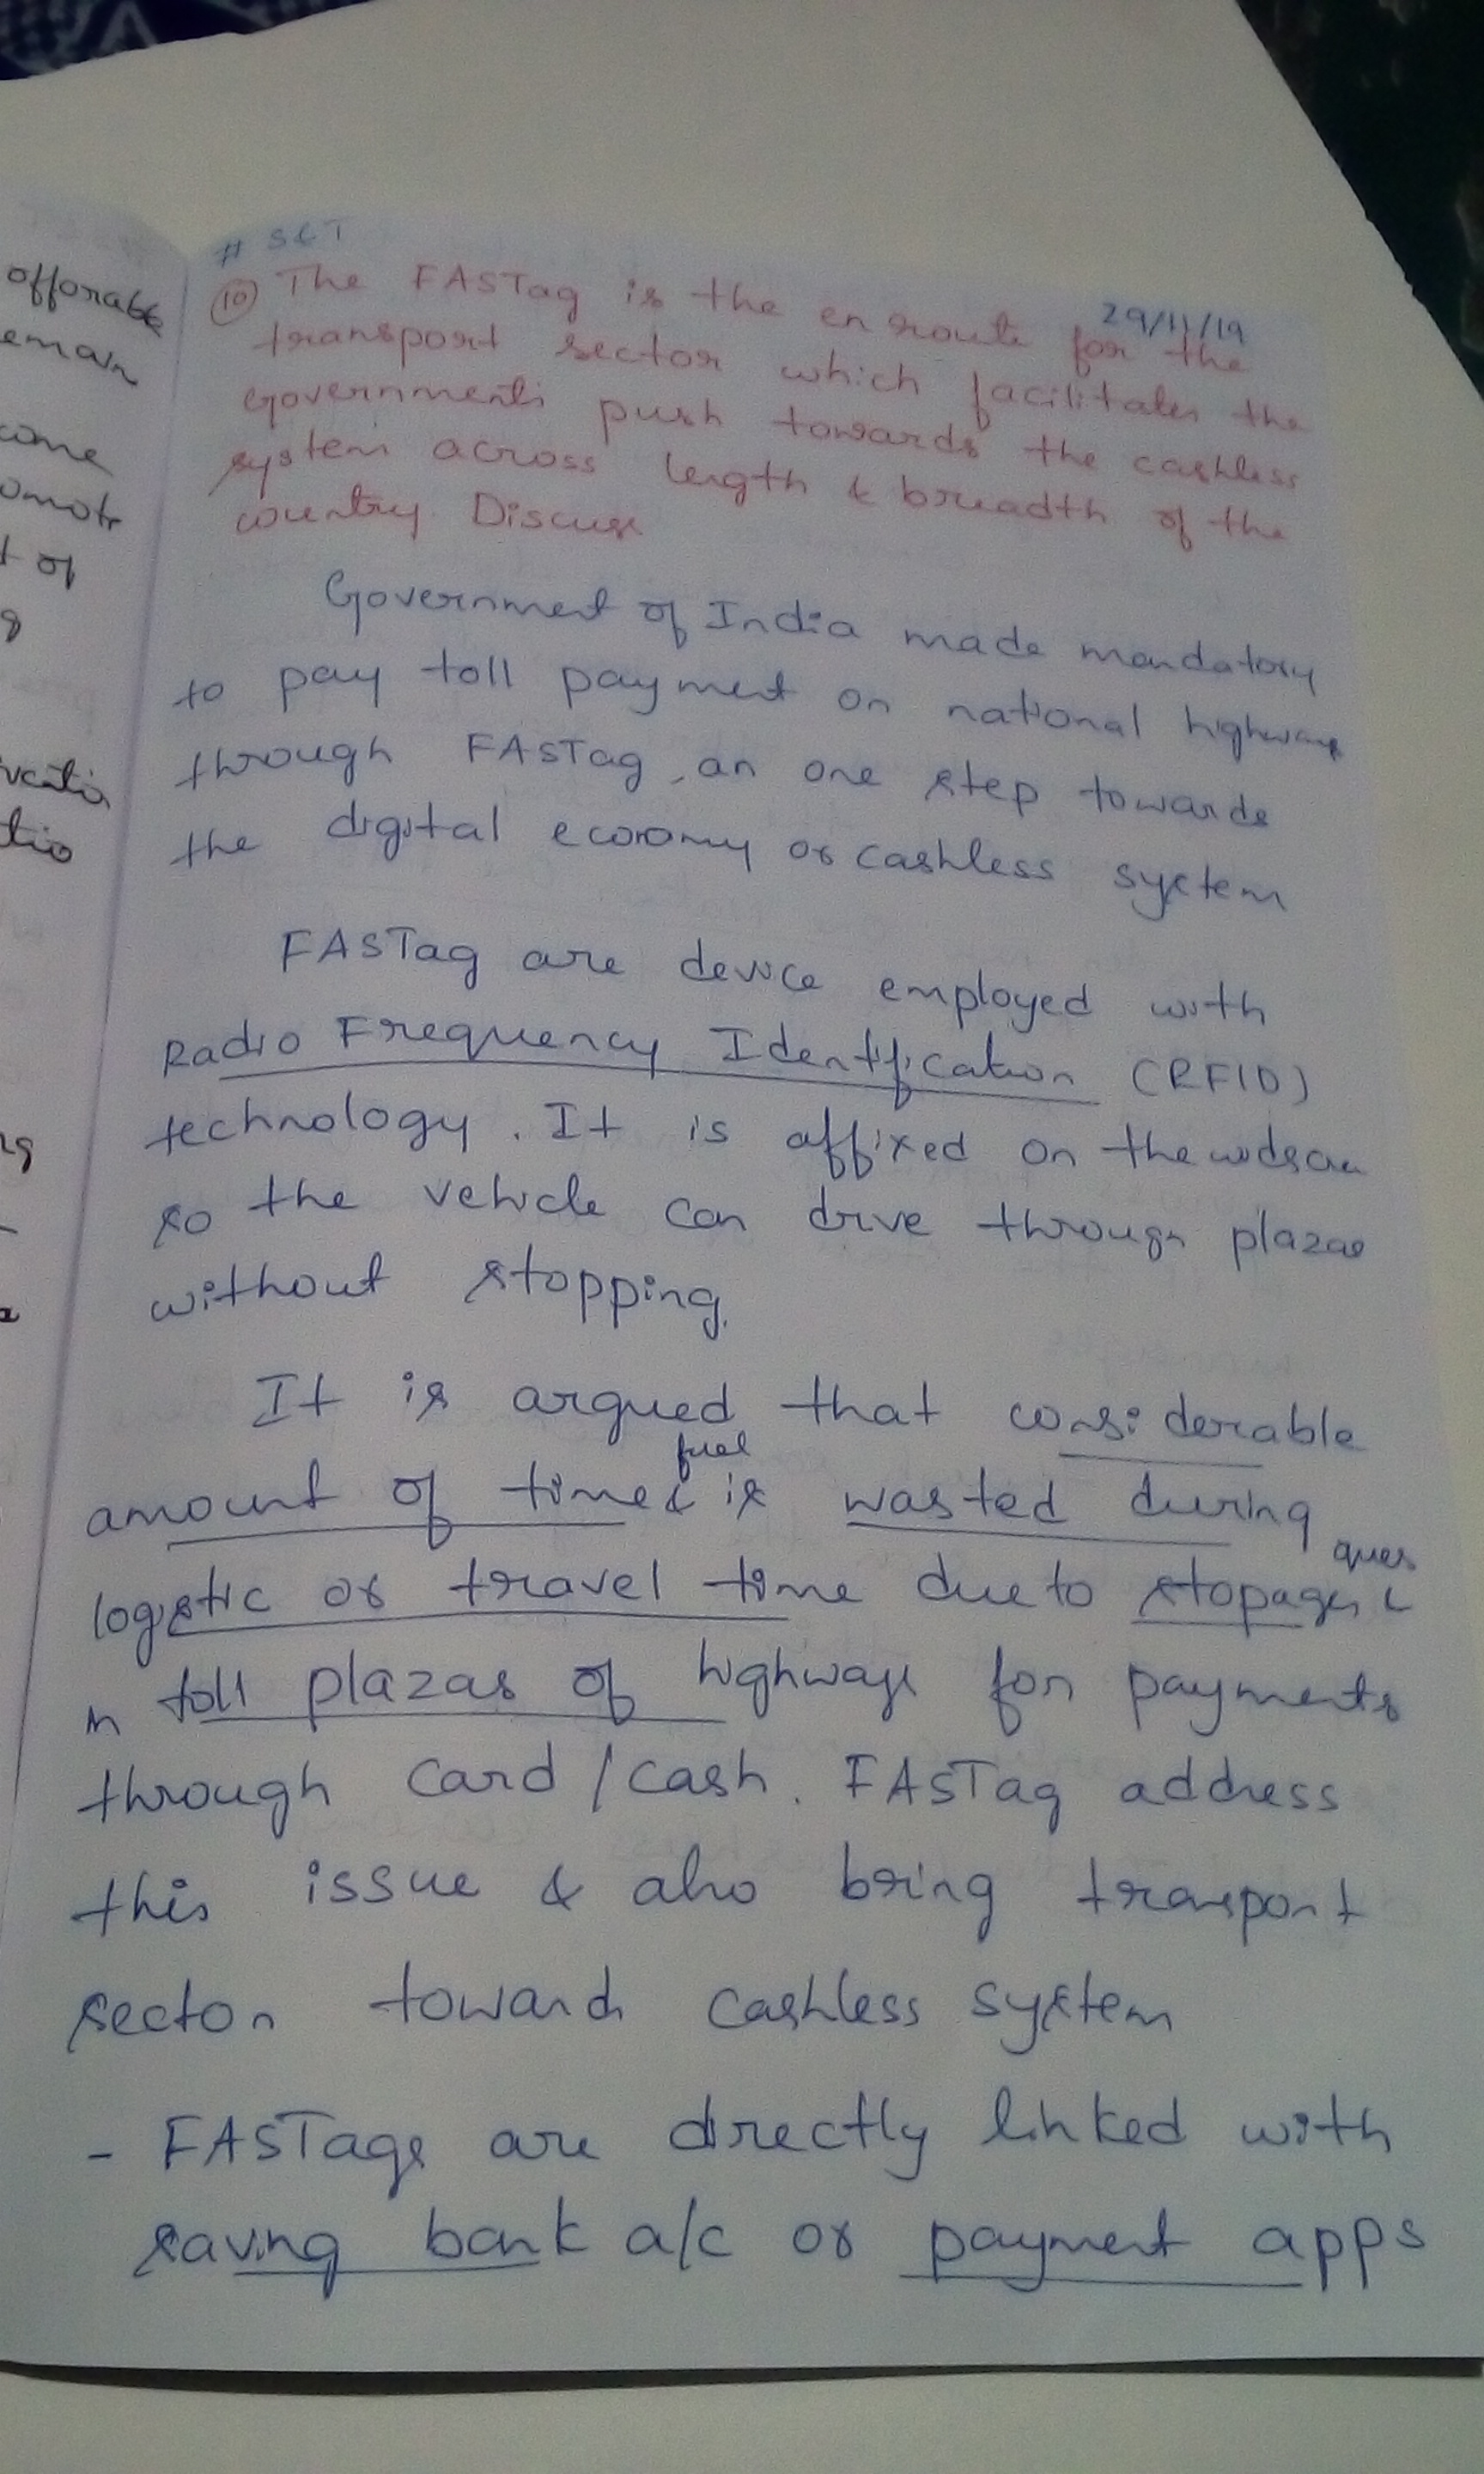 offorable
emain
come
omote
t of
g
vatio
tio
ng
# S&T
29/11/19
(10) The FASTag is the enroute for the
transport sector which facilitates the
governments push towards the cashless
system across length & breadth of the
country. Discuss
Government of India made mandatory
to pay toll payment on national highways
through FASTag, an one step towards
the digital economy or cashless system
FASTag are device employed with
Radio Frequency Identification (RFID)
technology. It is affixed on the
so the vehicle can drive through plazas
without stopping.
It is argued that considerable
amount of time & fuel is wasted during
logistic or travel time due to stopages & ques
in toll plazas of highways for payments
through card/cash. FASTag address
this issue & also bring transport
sector toward cashless system
- FASTags are directly linked with
saving bank a/c or payment apps